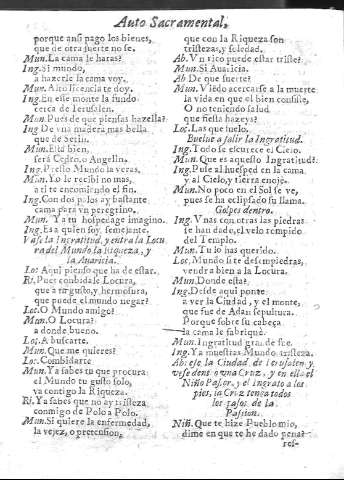 Auto Sacramental,
porque ansi pago los bienes,
que de otra suerte no se.
Mun. La cama le haras?
Ing. Si mundo,
a hazerle la cama voy.
Mun. Alto licencia te doy.
Ing. En este monte la fundo
cerca de Ierusalen.
Mun. Pues de que piensas hazella?
Ing De vna madera mas bella
que de Setin.
Mun. Està bien,
será Cedro, o Angelin.
Ing. Presto Mundo la veras.
Mun. Yo le recibi no mas,
a ti te encomiendo el fin.
Ing. Con dos palos ay bastante
cama para vn peregrino.
Mun. Ya tu hospedage imagino.
Ing. Es a quien soy, semejante.
Vase la Ingratitud, y entra la Locu
ra del Mundo la Riqueza, y
la Auaricia.
Loc Aqui pienso que ha de estar.
Ri. Pues conbidale Locura,
que a tu gusto, y hermosura,
que puede el mundo negar?
Loc. O Mundo amigo?
Mun. O Locura?
a donde bueno.
Loc. A buscarte.
Mun. Que me quieres?
Loc. Combidarte
Mun. Ya sabes tu que procura
el Mundo tu gusto solo,
va contigo la Riqueza.
Ri. Ya sabes que no ay tristeza
conmigo de Polo a Polo.
Mun. Si quiere la enfermedad,
la vejez, o pretension,
que con la Riqueza son
tristezas, y soledad.
Ab. Vn rico puede estar triste?
Mun. Si Auaricia.
Ab De que suerte?
Mun. Viēdo acercarse a la muerte
la vida en que el bien consiste,
O no teniendo salud
que fiesta hazeys?
Loc. Las que suelo.
Buelue a salir la Ingratitud.
Ing. Todo se escurece el Cielo.
Mun. Que es aquesto Ingratitud?
Ing. Puse al huesped en la cama
y al Cielo, y tierra enojè.
Mun. No poco en el Sol se ve,
pues se ha eclipsado su llama.
Golpes dentro.
Ing. Vnas con otras las piedras
se han dado, el velo rompido
del Templo.
Mun. Tu lo has querido.
Loc. Mundo si te despiedras,
vendra bien a la Locura.
Mun. Donde està?
Ing. Desde aqui ponte
a ver la Ciudad, y el monte,
que fue de Adan sepultura.
Porque sobre su cabeça
la cama le fabriquè.
Mun. Ingratitud grande fue.
Ing. Ya muestras Mundo tristeza.
Ab: ese la Ciudad de Ierusalen y
vese dentro vna Cruz, y en ella el
Niño Pastor, y el ingrato a los
pies, la Cruz tenga todos
los passos de la
Passion.
Niñ. Que te hize Pueblo mio,
dime en que te he dado pena?
res-